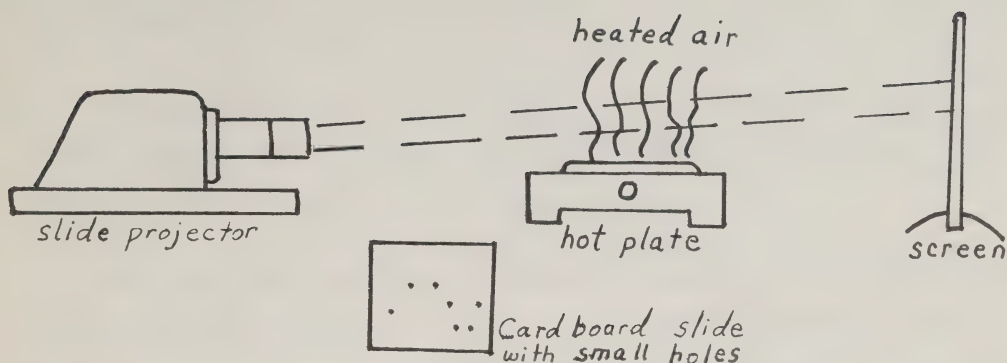 heated air
slide projector
hot plate
screen
Cardboard slide
with small holes